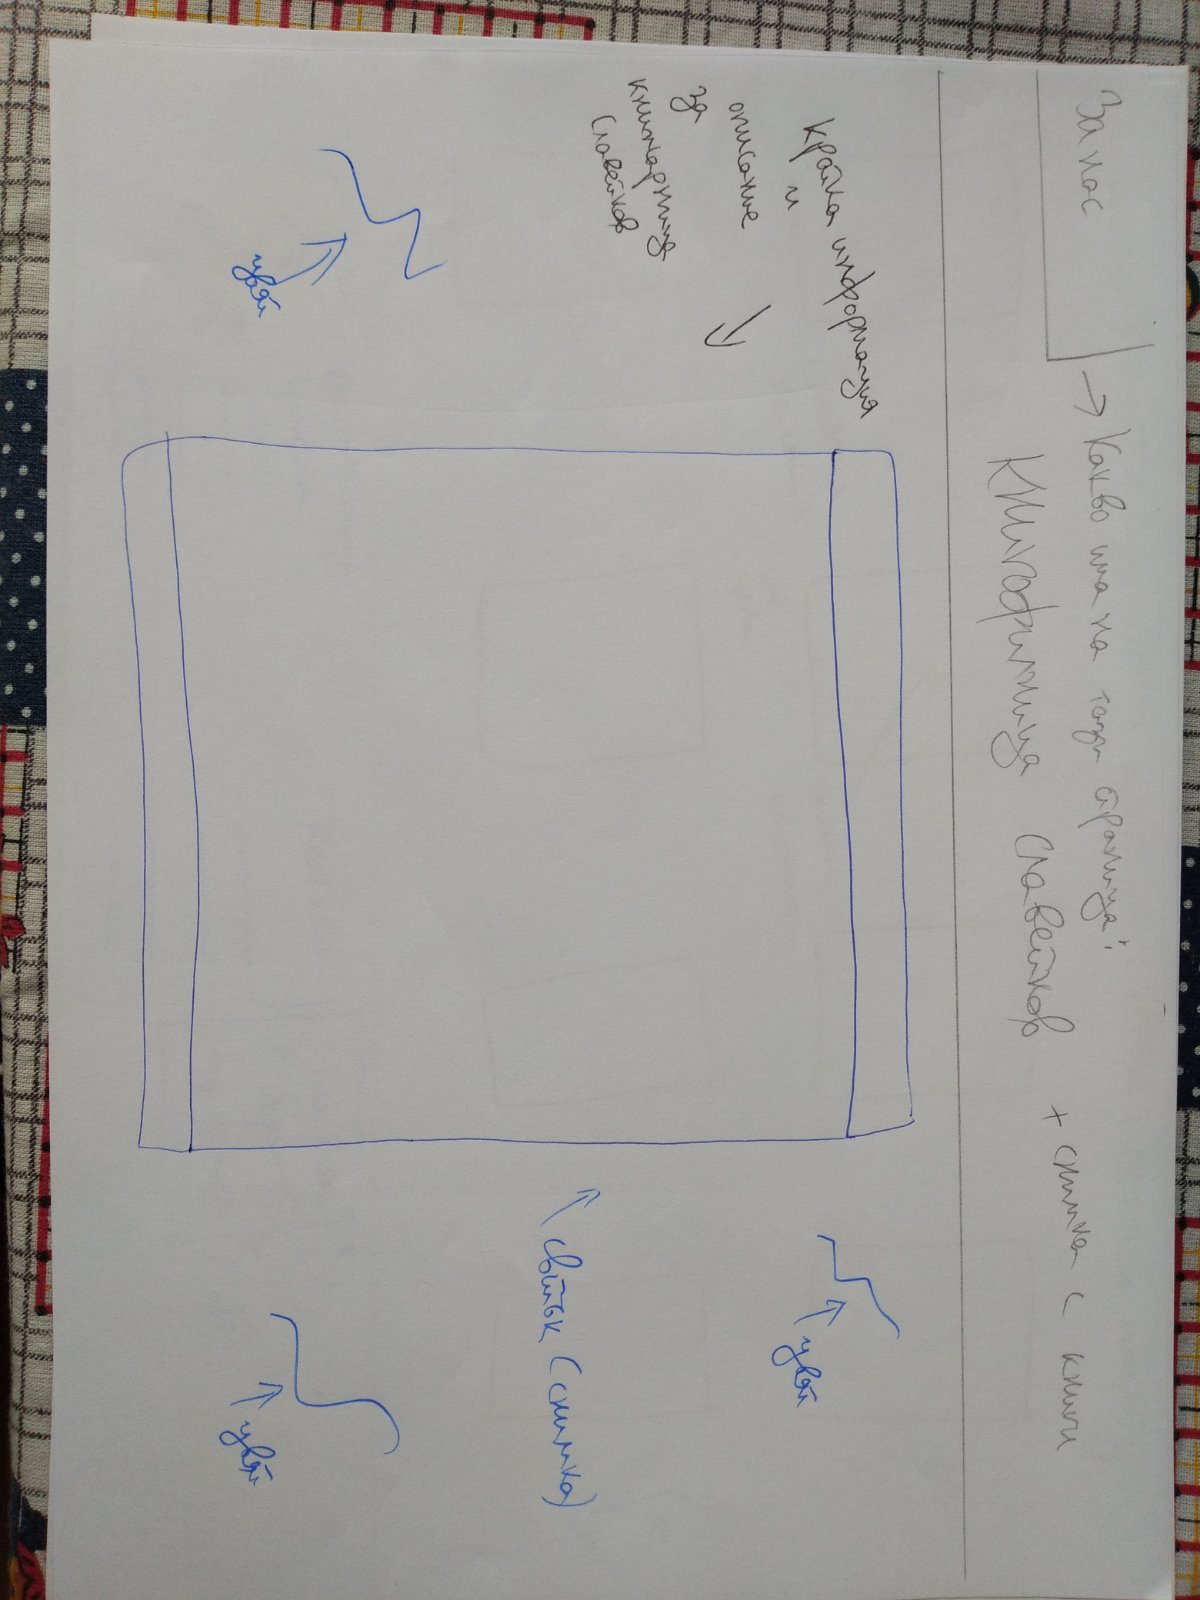 За нас
→ Какво има на тази страница:
Книжарница Славейков + снимка с книги
Крайна информация
и
описание
за
книжарница
Славейков
цвят
цвят
свитък (снимка)
цвят